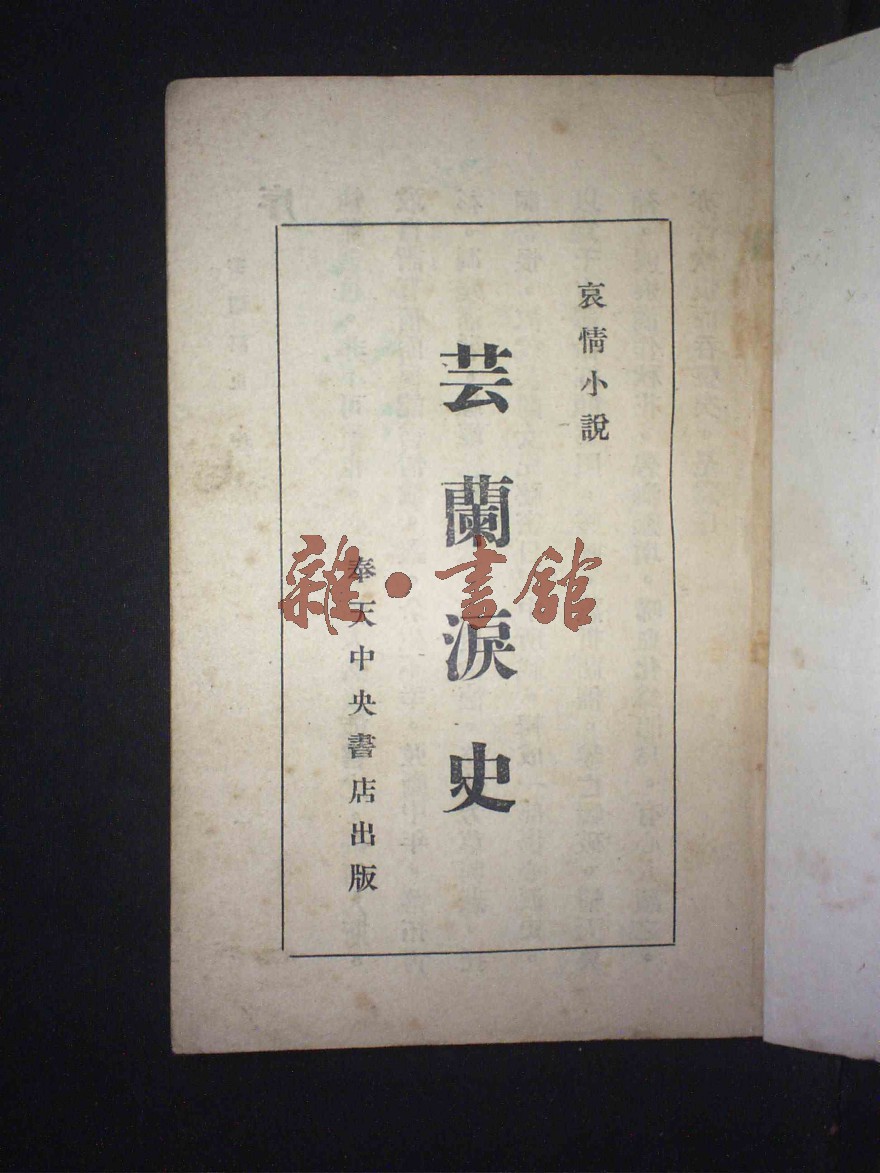 哀情小說
芸蘭淚史
奉天中央書店出版
雜·書館